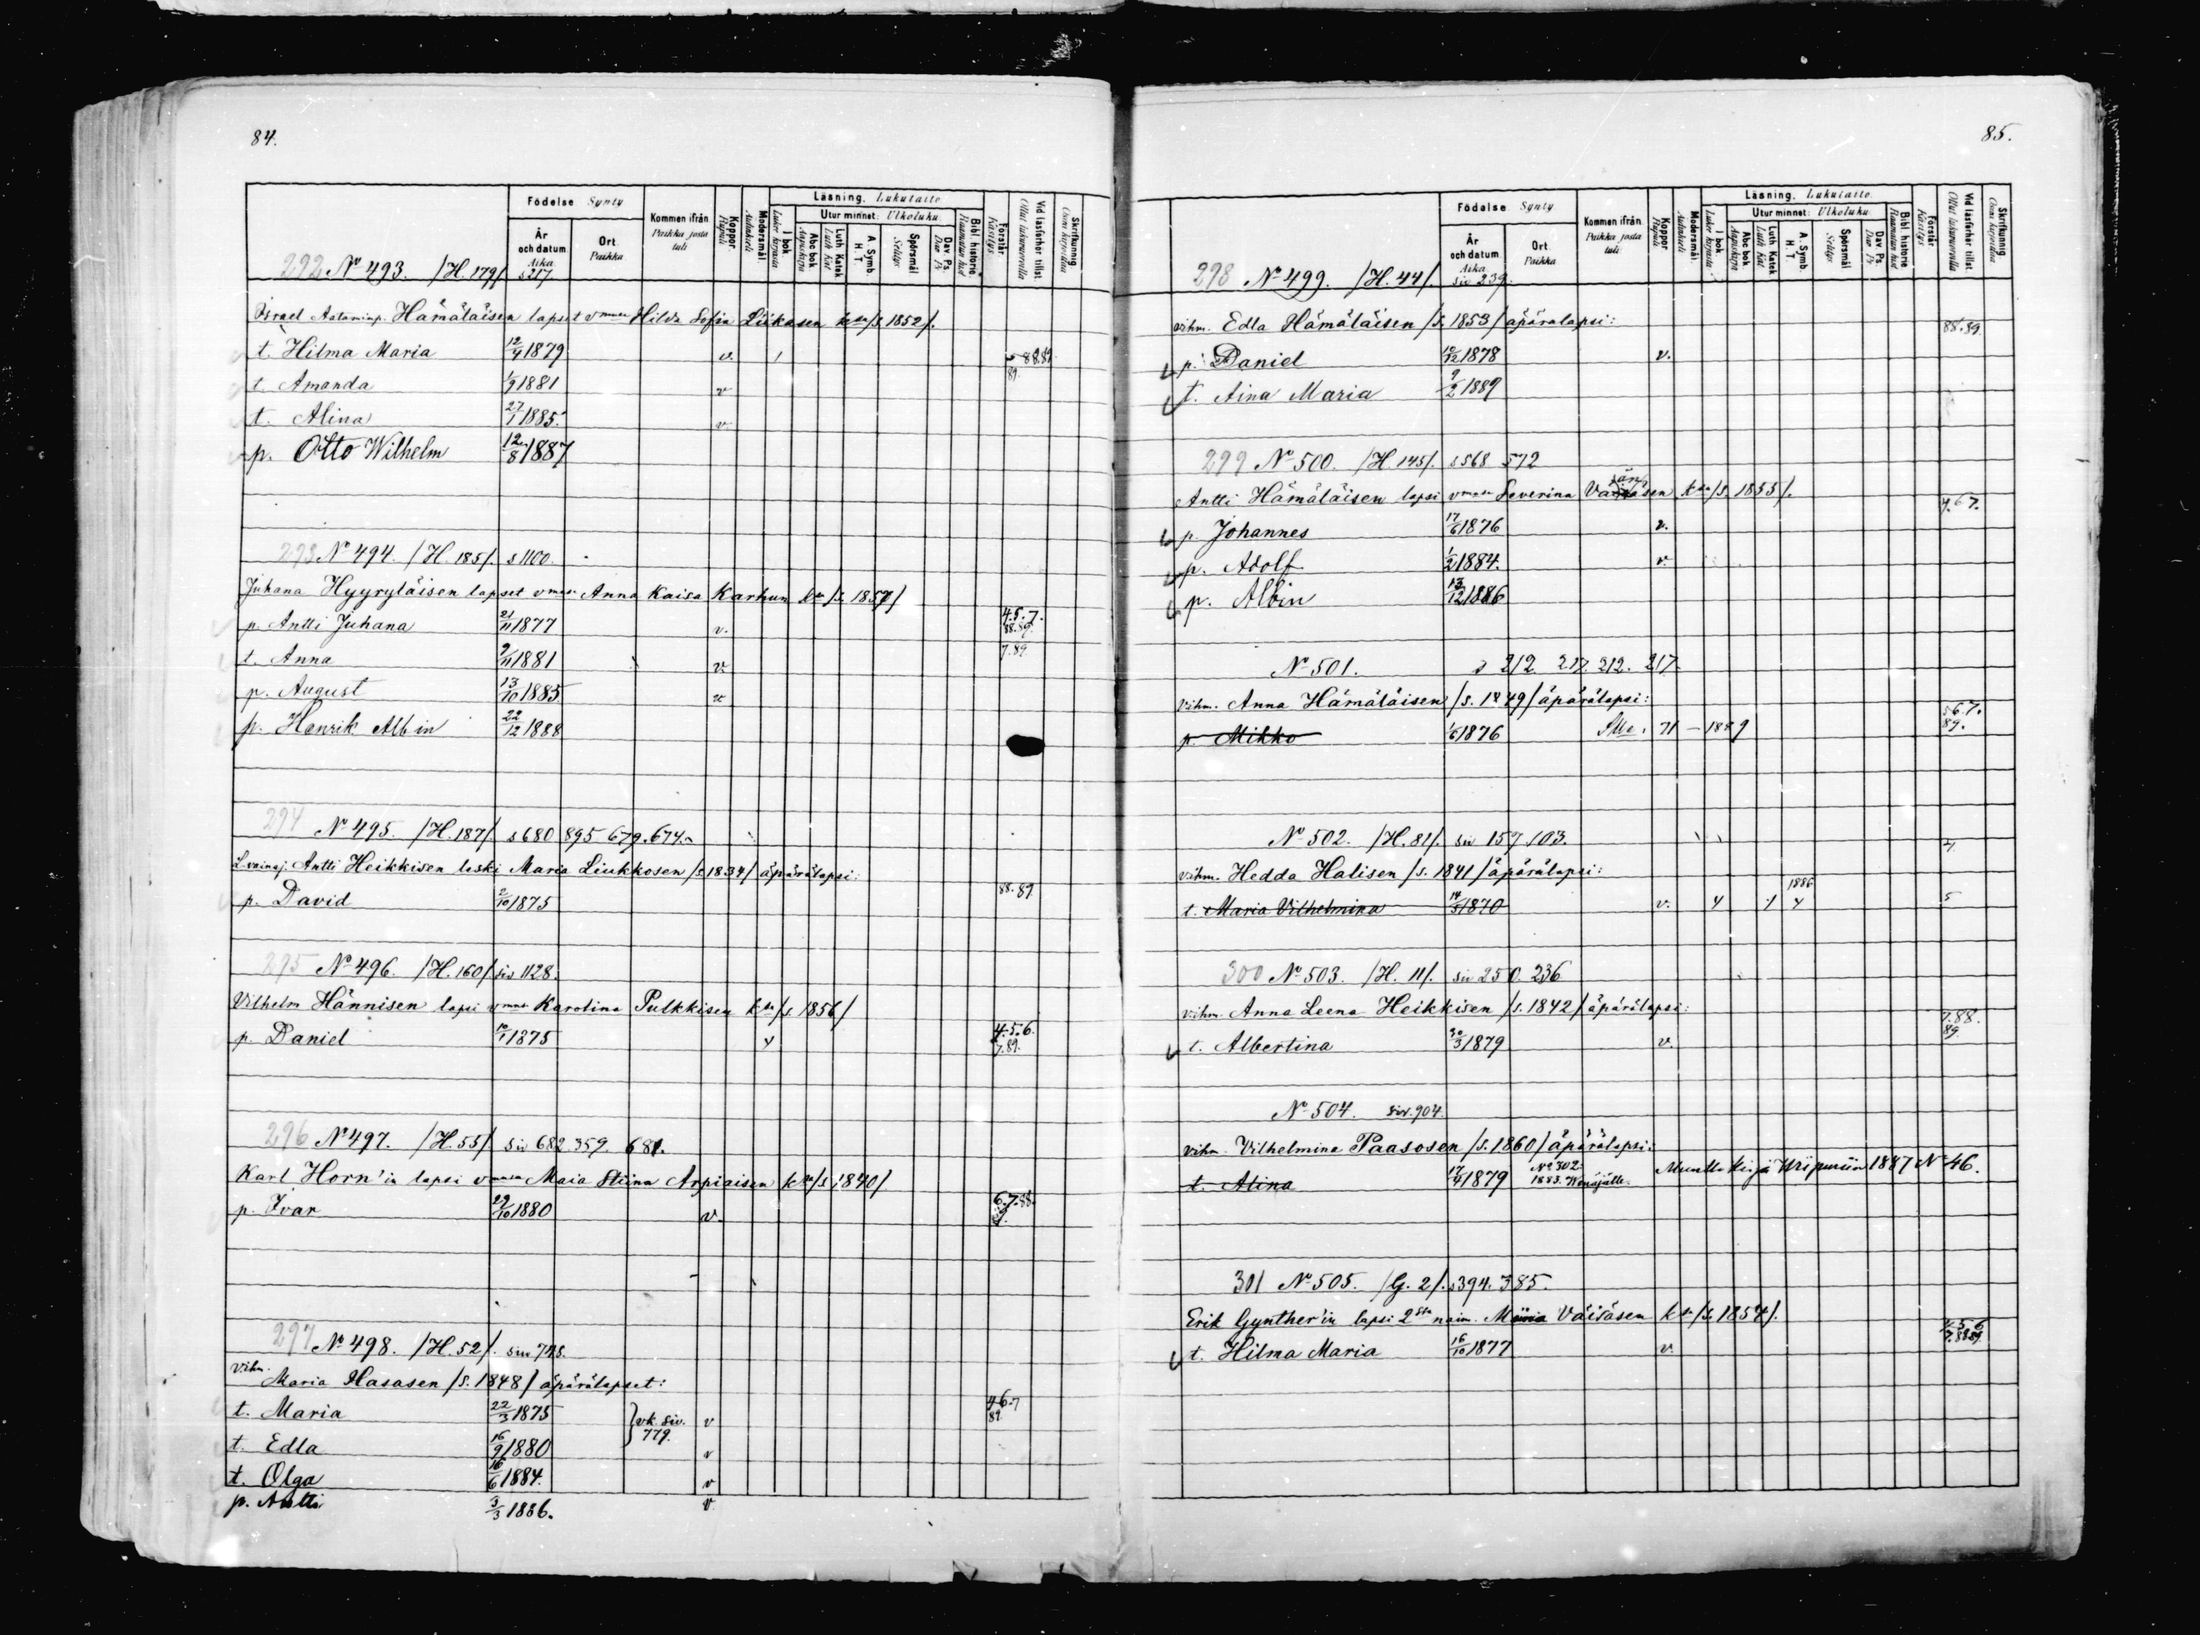 84.
Födelse Synty
Kommen ifrån Paikka josta tuli
Koppor Rupuli
Modersmål Äidinkieli
Läsning. Lukutaito
Utur minnet: Ulkoluku
I bok Lukee kirjasta
Abc bok Aapiskirja
Luth Katek Luth Kat
A. Symb. H. T.
Spörsmål Selitys
Dav. Ps. Dav Ps
Bibl. historie Raamatun hist
Förstår Käsitys
Vid läsförhör tillst. Ollut lukuluvuilla
Skrifkunnig Osaa kirjoittaa
År och datum Aika
Ort. Paikka
292 No 493. /H. 179/ s 217.
Israel Hämäläisen lapset Hilda Sofia Liikasen /s. 1852/.
t. Hilma Maria 12/4 1879 v. 1 88.89.
t. Amanda 1/9 1881 v 89.
t. Alina 27/1 1885. v
p. Otto Wilhelm 12/8 1887
293 No 494. /H. 185/. s 1100.
Juhana Hyyryläisen lapset Anna Kaisa Karhun /s. 1857/
p. Antti Juhana 21/11 1877 v. 4.5.7. 88.89.
t. Anna 9/11 1881 v. 7.89
p. August 13/10 1885 v
p. Henrik Albin 22/12 1888
294 No 495. /H. 187/. s 680 895 679. 674.
Antti Heikkisen leski Maria Liukkosen /s. 1834/ äpärälapsi:
p. David 2/10 1875 88.89
295 No 496. /H. 160/ siv 1128.
Vilhelm Hännisen lapsi Karolina Pulkkisen /s. 1856/
p. Daniel 10/1 1875 4 4.5.6. 7.89.
296 No 497. /H. 55/ siv 682 359. 681.
Karl Horn'in lapsi Maia Stiina Arpiaisen /s. 1840/
p. Ivar 29/10 1880 v. 6.7.88.
297 No 498. /H. 52/. siv 745.
vihm.
Maria Hasasen /s. 1848/ äpärälapset:
t. Maria 22/3 1875 vk. siv. 779. v 4.6.7 89
t. Edla 16/9 1880 v
t. Olga 16/6 1884. v
p. Antti 3/3 1886. v
85.
Födelse Synty
Kommen ifrån. Paikka josta tuli
Koppor Rupuli
Modersmål Äidinkieli
Läsning. Lukutaito
Utur minnet: Ulkoluku
I bok Lukee kirjasta
Abc bok Aapiskirja
Luth Katek Luth Kat
A. Symb. H. T.
Spörsmål Selitys
Dav. Ps. Dav Ps
Bibl. historie Raamatun hist
Förstår Käsitys
Vid läsförhör tillst. Ollut lukuluvuilla
Skrifkunnig. Osaa kirjoittaa
År och datum Aika
Ort. Paikka
298 No 499. /H. 44/. siv 239.
vihm. Edla Hämäläisen /s. 1853/ äpärälapsi: 88.89
p. Daniel 10/12 1878 v.
t. Aina Maria 9/2 1889
299 No 500. /H. 145/. s 568 572
Antti Hämäläisen lapsi Severina /s. 1853/. 4.6.7.
p. Johannes 17/6 1876 v.
p. Adolf 1/2 1884. v.
p. Albin 13/12 1886
No 501. s 212. 217. 212. 217.
vihm. Anna Hämäläisen /s. 1849/ äpärälapsi:
p. Mikko 1/6 1876 71 – 1889 5.6.7. 89.
No 502. /H. 81/. siv 157. 103.
vihm. Hedda Halisen /s. 1841/ äpärälapsi:
t. Maria Vilhelmina 14/5 1870 v. 4 4 1886 4 5
300 No 503. /H. 11/. siv 250. 236
vihm. Anna Leena Heikkisen /s. 1842/ äpärälapsi:
t. Albertina 30/3 1879 v. 7.88. 89.
No 504. siv. 904.
vihm. Vilhelmina Paasosen /s. 1860/ äpärälapsi:
t. Alina 17/4 1879 No 302. 1883. Wenäjälle. Muutto kirja Wiipuriin 1887 No 46.
301 No 505. /G. 2/. s 394. 385.
Erik Gynther'in lapsi 2sta naim. Maria Väisäsen /s. 1857/.
t. Hilma Maria 16/10 1877 v. 4.5.6 7.88.89